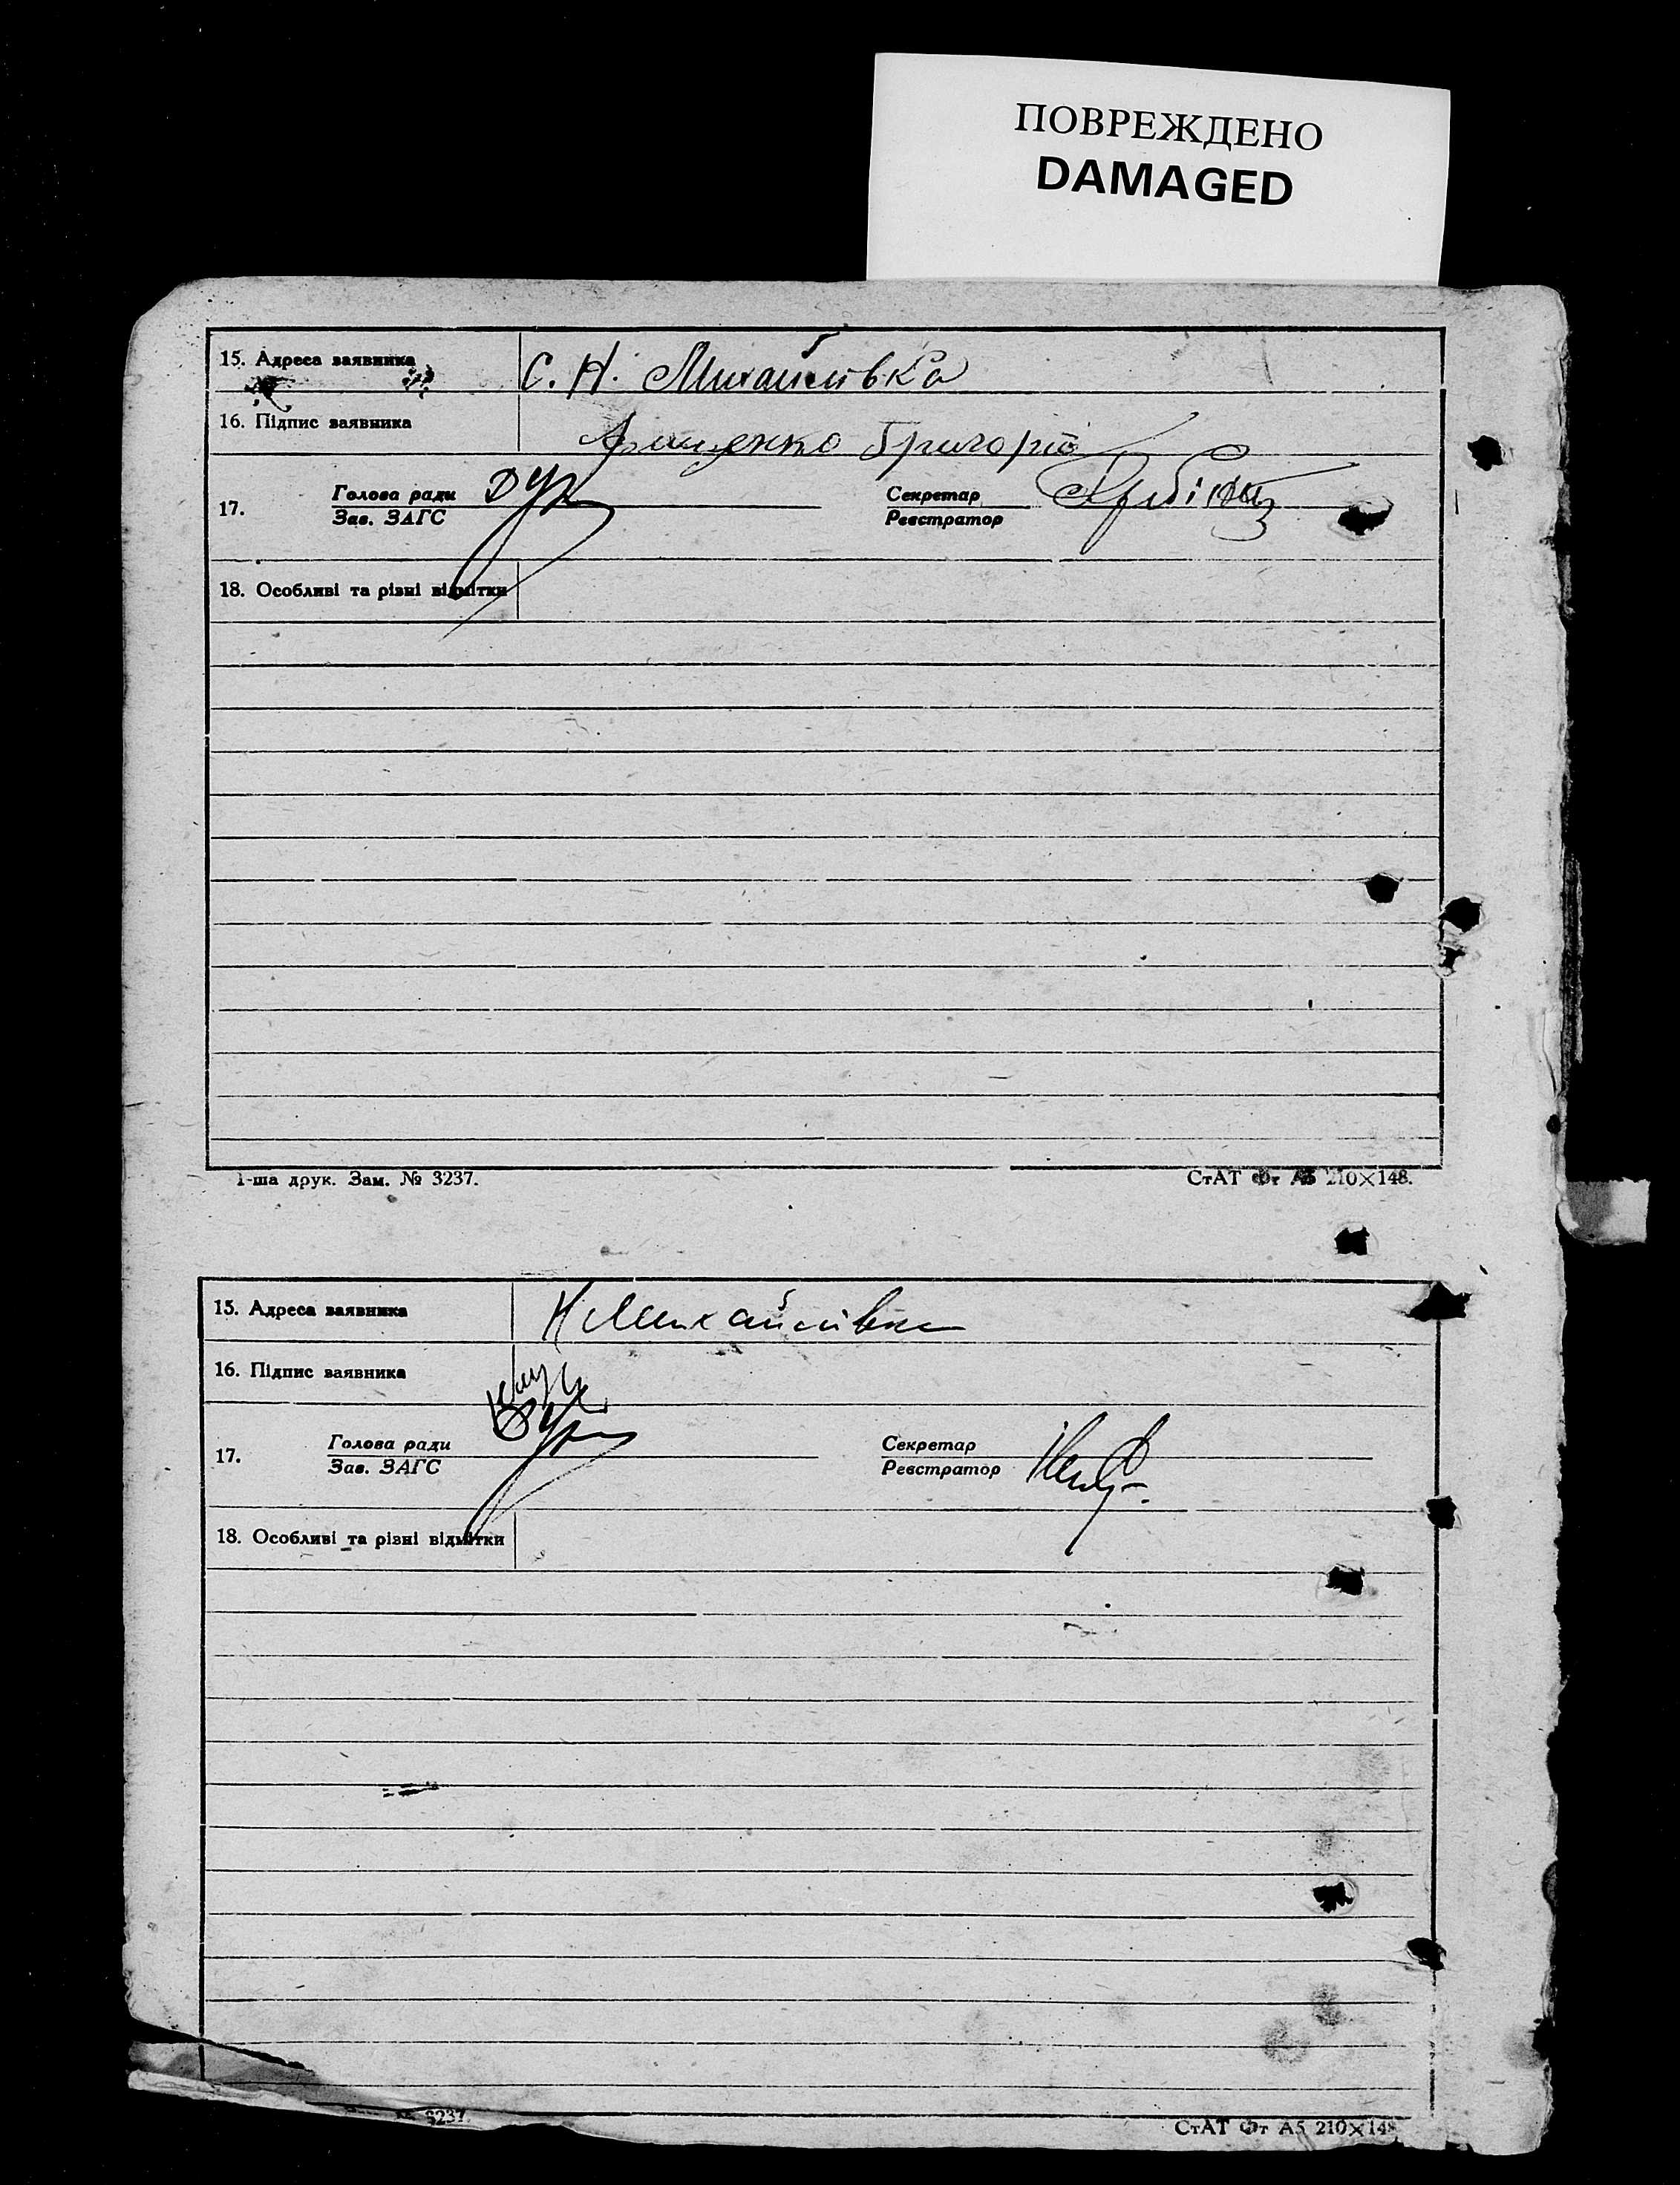 ПОВРЕЖДЕНО
DAMAGED
15. Адреса заявника С. Н. Михайлівка
16. Підпис заявника Григорій
17. Голова ради Секретар
Зав. ЗАГС Реєстратор
18. Особливі та різні відмітки
1-ша друк. Зам. № 3237. СтАТ Фт А5 210×148.
15. Адреса заявника Н Михайлівка
16. Підпис заявника
17. Голова ради Секретар
Зав. ЗАГС Реєстратор
18. Особливі та різні відмітки
3237. СтАТ Фт А5 210×148